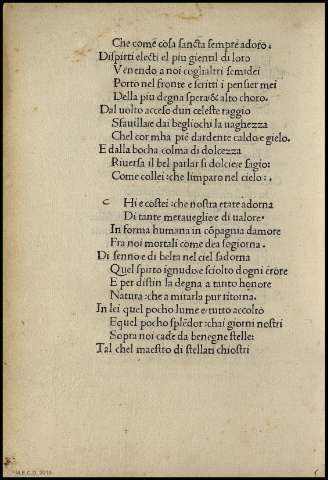 Che come cosa sancta sempre adoro.
Dispirti electi el piu gientil di loro
Venendo a noi cogli altri semidei
Porto nel fronte e scritti i pensier mei
Della piu degna spera & alto choro.
Dal uolto acceso dun celeste raggio
Sfauillaie dai begliochi la uaghezza
Chel cor mha piê dardente caldo e gielo.
E dalla bocha colma di dolcezza
Riuersa il bel parlar si dolcie e sagio:
Come collei :che limparo nel cielo :.
C Hi e costei :che nostra etate adorna
Di tante merauegli e e di ualore.
In forma humana in cōpagnia damore
Fra noi mortali come dea sogiorna.
Di senno e di belta nel ciel sadorna
Quel spirto ignudo e sciolto dogni errore
E per distin la degna a tanto honore
Natura :che a mirarla pur ritorna.
In lei quel pocho lume e tutto accolto
E quel pocho splēdor :chai giorni nostri
Sopra noi cade da benegne stelle:
Tal chel maestro di stellati chiostri
M.E.C.D. 2015